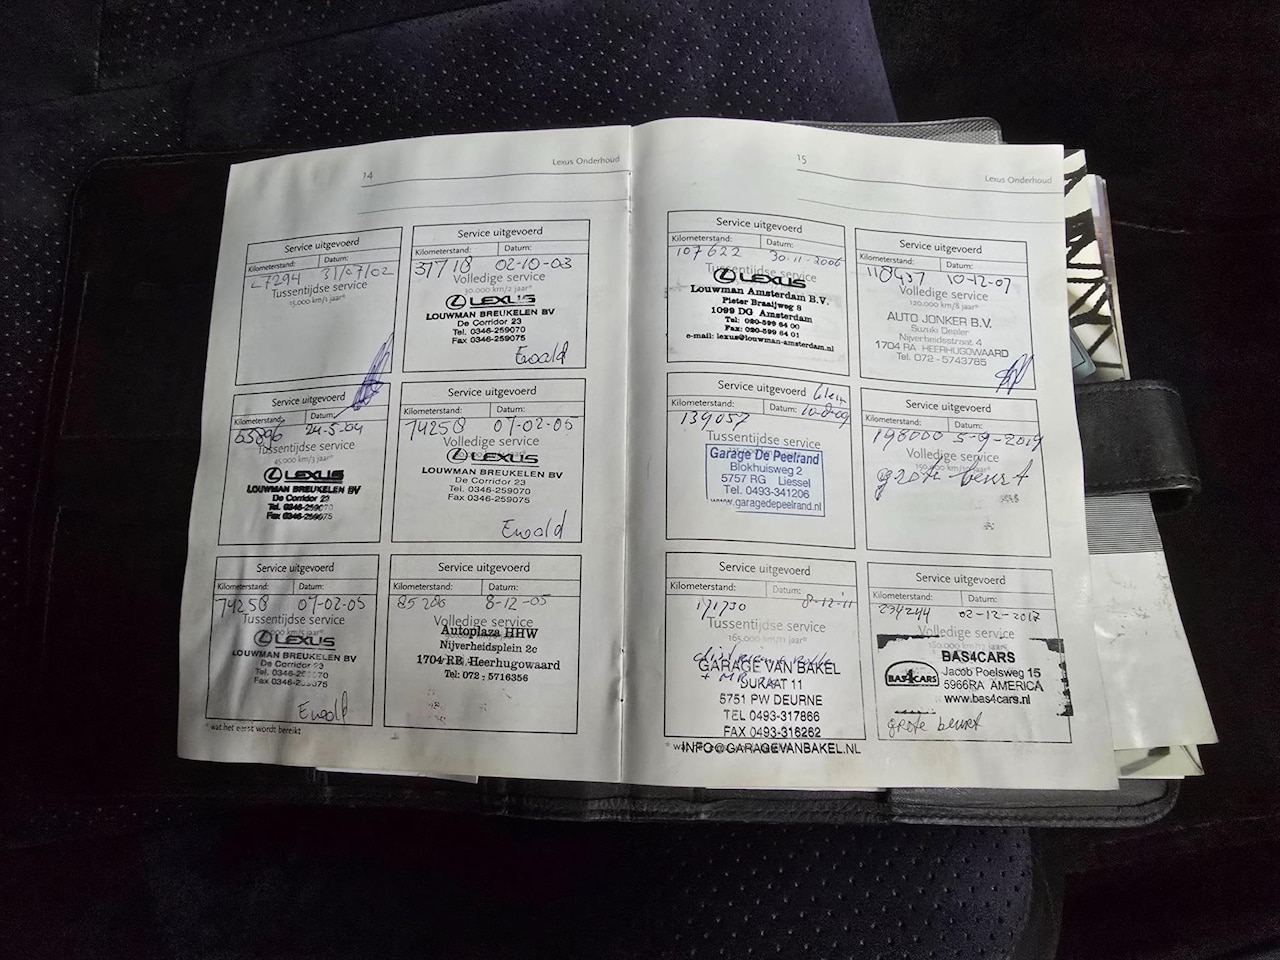 14
Lexus Onderhoud
Service uitgevoerd
Kilometerstand: Datum:
27294 31/07/02
Tussentijdse service
15.000 km/1 jaar*
Service uitgevoerd
Kilometerstand: Datum:
37718 02-10-03
Volledige service
30.000 km/2 jaar*
LEXUS
LOUWMAN BREUKELEN BV
De Corridor 23
Tel. 0346-259070
Fax 0346-259075
Ewald
Service uitgevoerd
Kilometerstand: Datum:
55896 24-5-04
Tussentijdse service
45.000 km/3 jaar*
LEXUS
LOUWMAN BREUKELEN BV
De Corridor 23
Tel. 0346-259070
Fax 0346-259075
Service uitgevoerd
Kilometerstand: Datum:
74258 07-02-05
Volledige service
LEXUS
LOUWMAN BREUKELEN BV
De Corridor 23
Tel. 0346-259070
Fax 0346-259075
Ewald
Service uitgevoerd
Kilometerstand: Datum:
74258 07-02-05
Tussentijdse service
LEXUS
LOUWMAN BREUKELEN BV
De Corridor 23
Tel. 0346-259070
Fax 0346-259075
Ewald
Service uitgevoerd
Kilometerstand: Datum:
85206 8-12-05
Volledige service
Autoplaza HHW
Nijverheidsplein 2c
1704 RB Heerhugowaard
Tel: 072 - 5716356
* wat het eerst wordt bereikt
15
Lexus Onderhoud
Service uitgevoerd
Kilometerstand: Datum:
107622 30-11-2006
Tussentijdse service
LEXUS
Louwman Amsterdam B.V.
Pieter Braaijweg 8
1099 DG Amsterdam
Tel: 020-599 64 00
Fax: 020-599 64 01
e-mail: lexus@louwman-amsterdam.nl
Service uitgevoerd
Kilometerstand: Datum:
118437 10-12-07
Volledige service
120.000 km/8 jaar*
AUTO JONKER B.V.
Suzuki Dealer
Nijverheidsstraat 4
1704 RA HEERHUGOWAARD
Tel. 072 - 5743785
Service uitgevoerd
Kilometerstand: Datum:
139057 10-8-09
Tussentijdse service
Garage De Peelrand
Blokhuisweg 2
5757 RG Liessel
Tel. 0493-341206
www.garagedepeelrand.nl
Service uitgevoerd
Kilometerstand: Datum:
198000 5-9-2019
Volledige service
grote beurt
Service uitgevoerd
Kilometerstand: Datum:
171730 8-12-'11
Tussentijdse service
165.000 km/11 jaar*
GARAGE VAN BAKEL
5751 PW DEURNE
TEL 0493-317866
FAX 0493-316262
INFO@GARAGEVANBAKEL.NL
Service uitgevoerd
Kilometerstand: Datum:
234244 02-12-2017
Volledige service
BAS4CARS
BAS4CARS
Jacob Poelsweg 15
5966RA AMERICA
www.bas4cars.nl
grote beurt